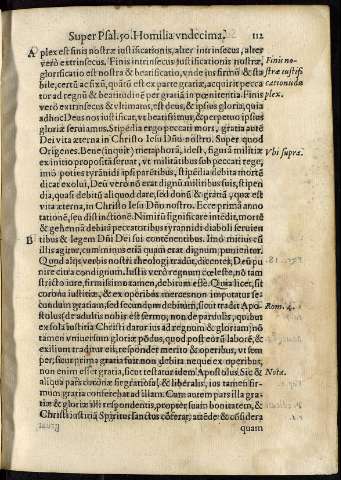 Super Psal. 50. Homilia vndecima. 112
A plex est finis nostræ iustificationis, alter intrinsecus, alter
verò extrinsecus. Finis intrinsecus iustificationis nostræ,
glorificatio est nostra & beatificatio, vnde ius firmū & sta
bile, certū ac fixū, quātū est ex parte gratiæ, acquirit pecca
tor ad regnū & beatitudinē per gratiā in pœnitētia. Finis
verò extrinsecus & vltimatus, est deus, & ipsius gloria, quia
adhoc Deus nos iustificat, vt beatissimus, & perpetuo ipsius
gloriæ seruiamus. Stipēdia ergo peccati mors, gratia autē
Dei vita æterna in Christo Iesu Dño nostro. Super quod
Origenes. Bene (inquit) metaphorā, idest, figurā militiæ
ex initio proposita seruat, vt militātibus sub peccati rege,
imò poties tyrānidi ipsi parētibus, stipēdia debita mortē
dicat exolui, Deū verò nō erat dignū militibus suis, stipen
dia, quasi debitū aliquod dare, sed donū & gratiā, quæ est
vita æterna, in Christo Iesu Dño nostro. Ecce prima anno
tationē, seu distinctionē. Nimirū significare intēdit, mortē
& gehennā debitā peccatoribus tyrannidis diaboli seruien
B tibus & legem Dñi Dei sui contēnentibus. Imò mitius cū
illis agitur, cum minus etiā quam erat dignum, punientur.
Quod aliqs verbis nostri theologi tradūt, dicentes, Deū pu
nire citra condignum. Iustis verò regnum cœleste, nō tam
stricto iure, firmissimo tamen, debitum esse. Quia licet, sit
corona iustitiæ, & ex operibus merces non imputatur se-
cundum gratiam, sed secundum debitum, sicut tradit Apo
stolus (de adultis nobis est sermo, non de paruulis, quibus
ex sola iustitia Christi datur ius ad regnum & gloriam) nō
tamen vniuersum gloriæ pōdus, quod post eorū laborē, &
exilium traditur eis, respondet merito & operibus, vt sem
per, sicut prima gratia fuit non debita neque ex operibus,
non enim esset gratia, sicut testatur idem Apostolus. Sic &
aliqua pars coronæ sit gratiosa, & liberalis, ius tamen fir-
mum gratia conferebat ad illam. Cum autem pars illa gra-
tiæ & gloriæ illi respondentis, propter suam bonitatem, &
Christi iustitiā Spiritus sanctus cōferat, attēde & cōsidera
quam
Finis no-
stræ iustifi
cationis du
plex.
Vbi supra.
Rom. 4.
Nota.